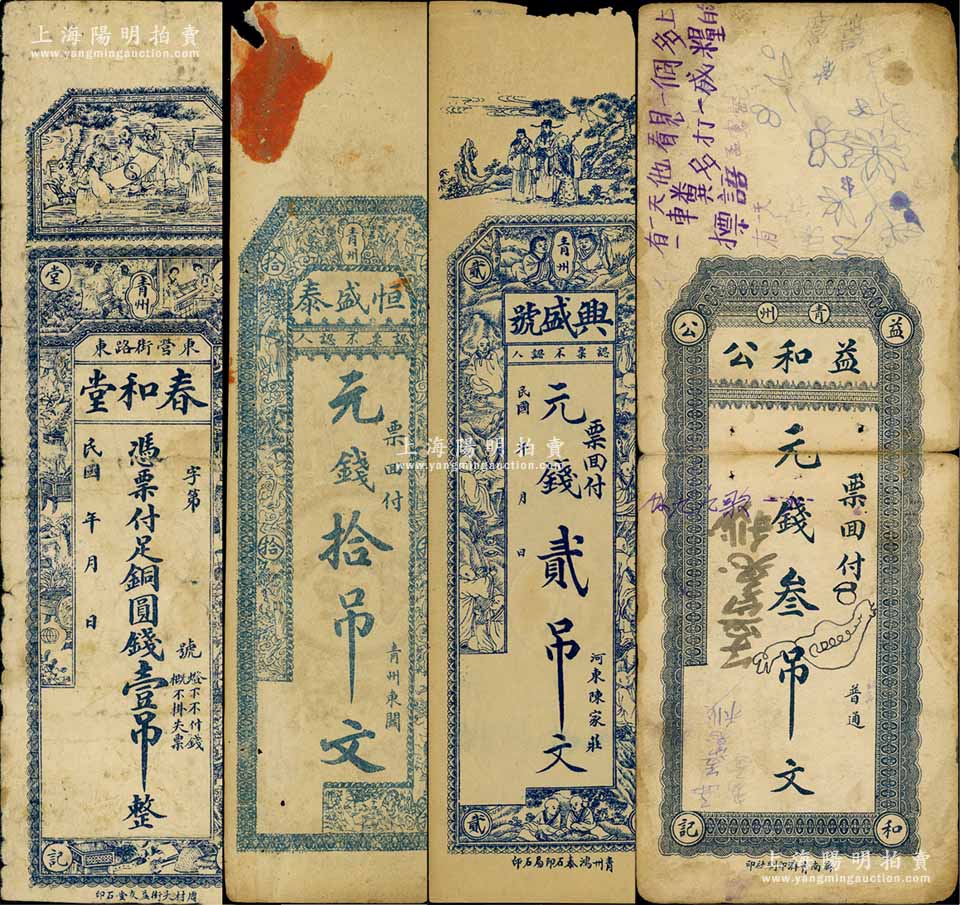 上海陽明拍賣
www.yangmingauction.com
青州
堂
東營街路東
春和堂
字第
號
憑票付足銅圓錢壹吊整
民國 年 月 日
燈下不付錢
概不掛失票
記
青州
拾
恒盛泰
認票不認人
票回付
元錢拾吊文
拾
青州東關
上海陽明拍賣
www.yangmingauction.com
青州
貳
興盛號
認票不認人
票回付
元錢貳吊文
民國 年 月 日
河東陳家莊
貳
青州鴻泰石印局石印
上海陽明拍賣
www.yangmingauction.com
有一天他看見一個多上
一車糞多打一成糧自
擇語
青州
益
公
益和公
票回付
元錢叁吊文
普通
和
記
上海陽明拍賣
www.yangmingauction.com